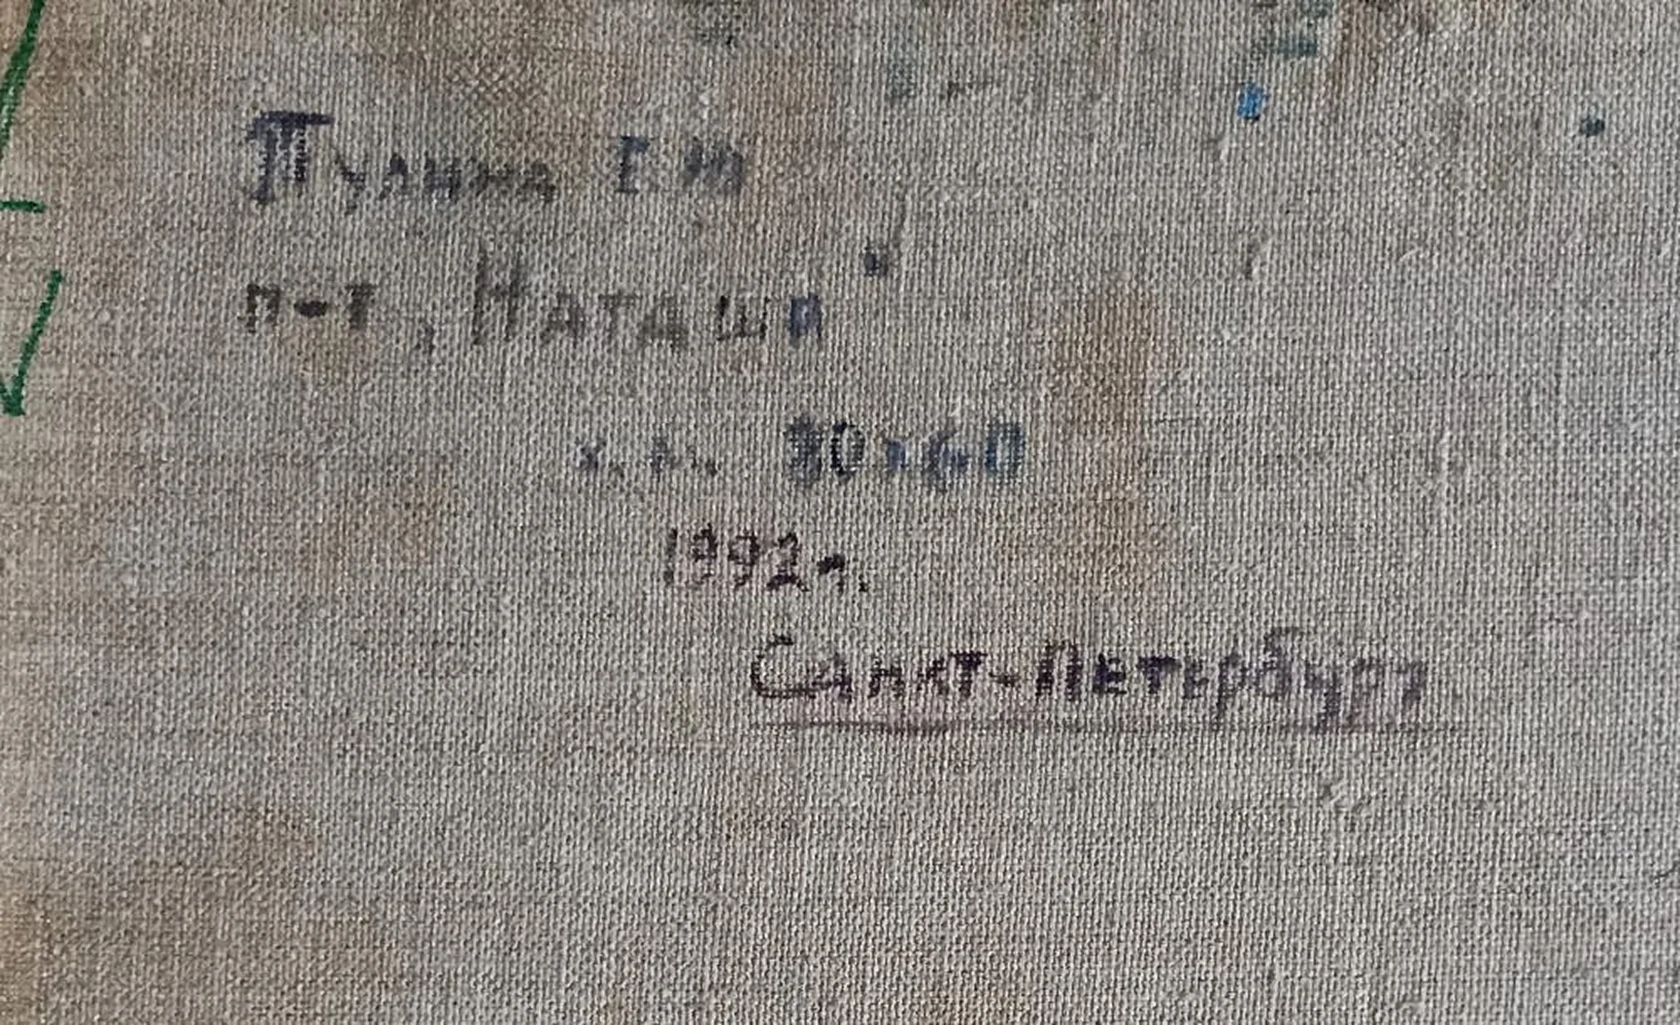 Тулина Е.Ю
п-т „Наташа"
х.м. 80х60
1992 г.
Санкт-Петербург